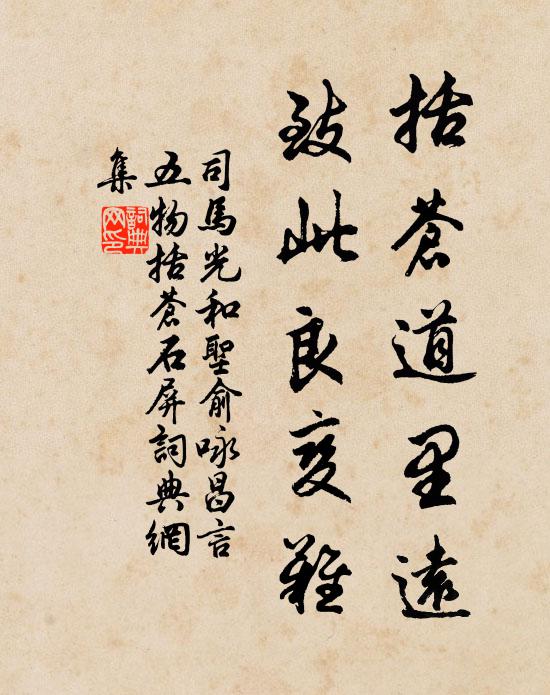 括蒼道里遠
致此良難
司馬光和聖俞咏昌言
五物括蒼石屏詞典網
集
詞典
网印